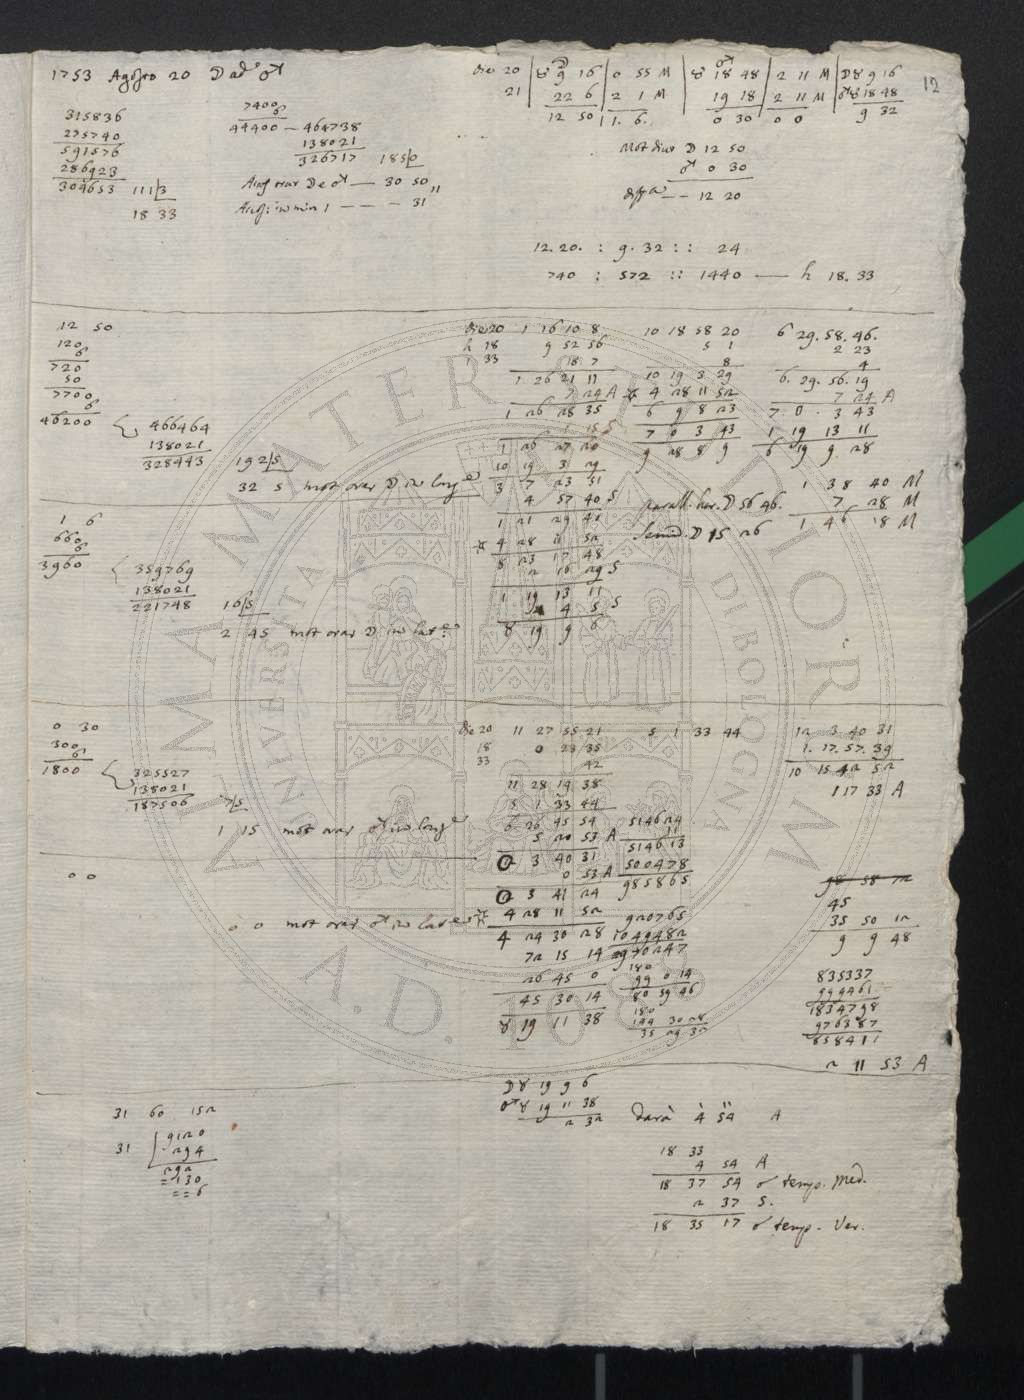 1753 Agosto 20 ☽ ad ♂
315836
275740
591576
286923
304653 111|3
18 33
7400
6
44400 — 464738
138021
326717 185|0
Aug orar ☽ e ♂ — 30 50
Aug: in min 1 — — — 31
Die 20 | ♉ 9 16 | 0 55 M | ♉ 18 48 | 2 11 M | ☽ ♉ 9 16
21 | 22 6 | 2 1 M | 19 18 | 2 11 M | ♂ ♉ 18 48
12 50 | 1 6 | 0 30 | 0 0 | 9 32
12
Mot diur ☽ 12 50
♂ 0 30
diffa — — 12 20
12. 20. : 9. 32 :: 24
740 : 572 :: 1440 — h 18. 33
12 50
120
6
720
50
7700
6
46200
466464
138021
328443 192|5
32 5 mot orar ☽ in long
Die 20 1 16 10 8
h 18 9 52 56
33 18 7
1 26 21 11
7 24 A
1 26 28 35
1 15 S
1 26 27 20
10 19 3 29
3 7 23 51
4 57 40 S
1 21 29 40
4 28 11 52
8 23 17 48
2 16 29 S
1 19 13 11
4 5 S
8 19 9 6
10 18 58 20
5 1
8
10 19 3 29
4 28 11 52
6 9 8 23
7 0 3 43
9 28 8 9
6 29. 58. 46.
2 23
4
6. 29. 56. 19
7 24 A
7 0. 3 43
1 19 13 11
6 19 9 28
parall. hor. ☽ 56 46.
Semid. ☽ 15 26
1 38 40 M
7 28 M
1 46 8 M
1 6
660
6
3960
359769
138021
221748 16|5
2 45 mot orar ☽ in lat
0 30
300
6
1800
325527
138021
187506 7|5
1 15 mot orar ♂ in long
0 0
0 0 mot orar ♂ in lat
Die 20 11 27 55 21
18 0 23 35
33 42
11 28 19 38
5 1 33 44
6 26 45 54
5 20 53 A
2 3 40 31
0 53 A
2 3 41 24
4 28 11 52
4 24 30 28
72 15 14
26 45 0
45 30 14
8 19 11 38
5 1 33 44
514624
11
514613
500478
985865
920765
1049482
2970247
180
99 0 14
80 59 46
180
144 30 28
35 29 32
12 3 40 31
1. 17. 57. 39
10 15 42 52
1 17 33 A
98 58 72
45
35 50 12
9 9 48
835337
999461
1834798
976387
858411
2 11 53 A
31 60 152
31 9120
294
292
= 130
= = 6
☽ ♉ 19 9 6
♂ ♉ 19 11 38
2 32
darà 4 54 A
18 33
4 54 A
18 37 54 ☌ temp. Med.
2 37 S.
18 35 17 ☌ temp. Ver.
ALMA MATER STUDIORUM
UNIVERSITA DI BOLOGNA
A.D. 1088